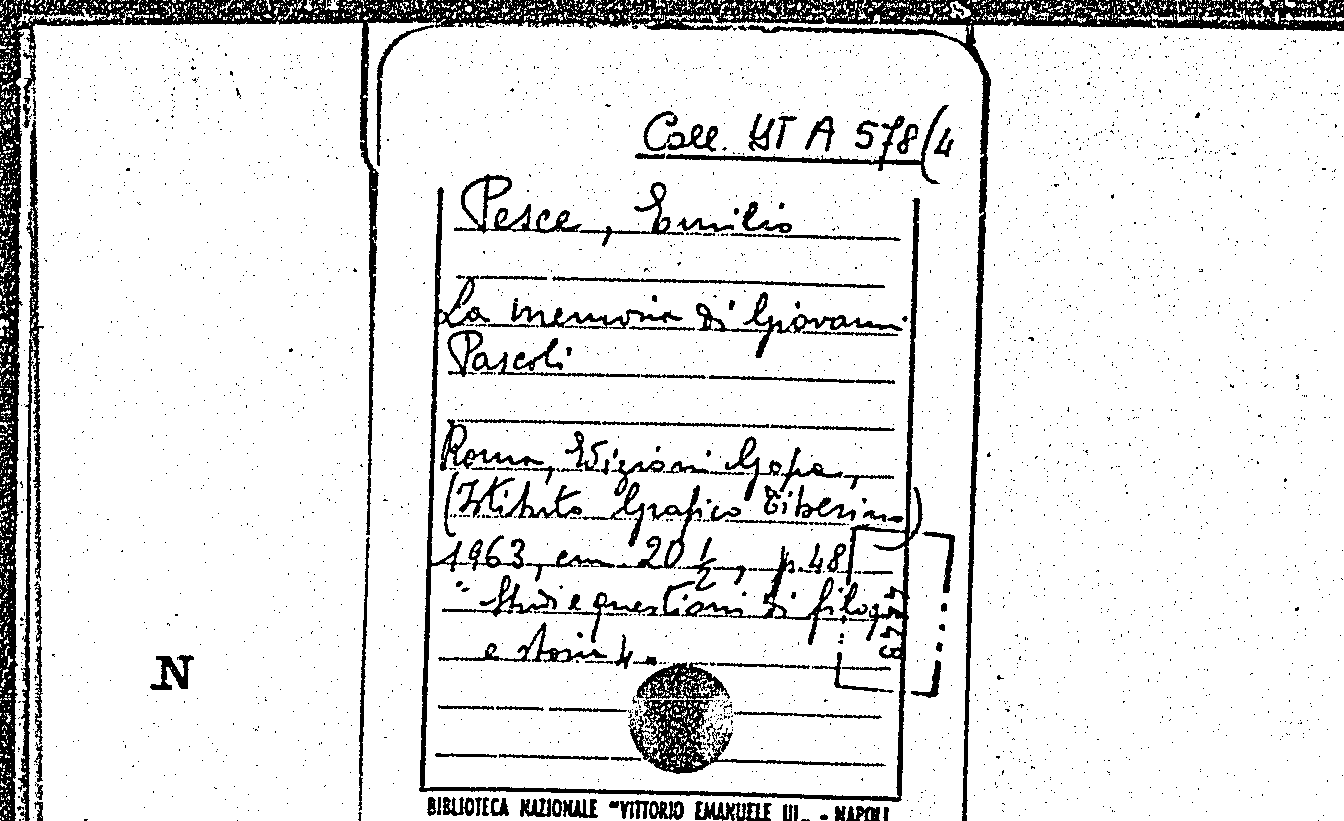 Coll. YT A 578(4
Pesce, Emilio
La memoria di Giovanni
Pascoli
Roma, Edizioni Gopa,
(Istituto Grafico Tiberino)
1963, cm. 20 1/2, p. 48
Studi e questioni di filog.
e storia 4.
N
BIBLIOTECA NAZIONALE "VITTORIO EMANUELE III„ - NAPOLI